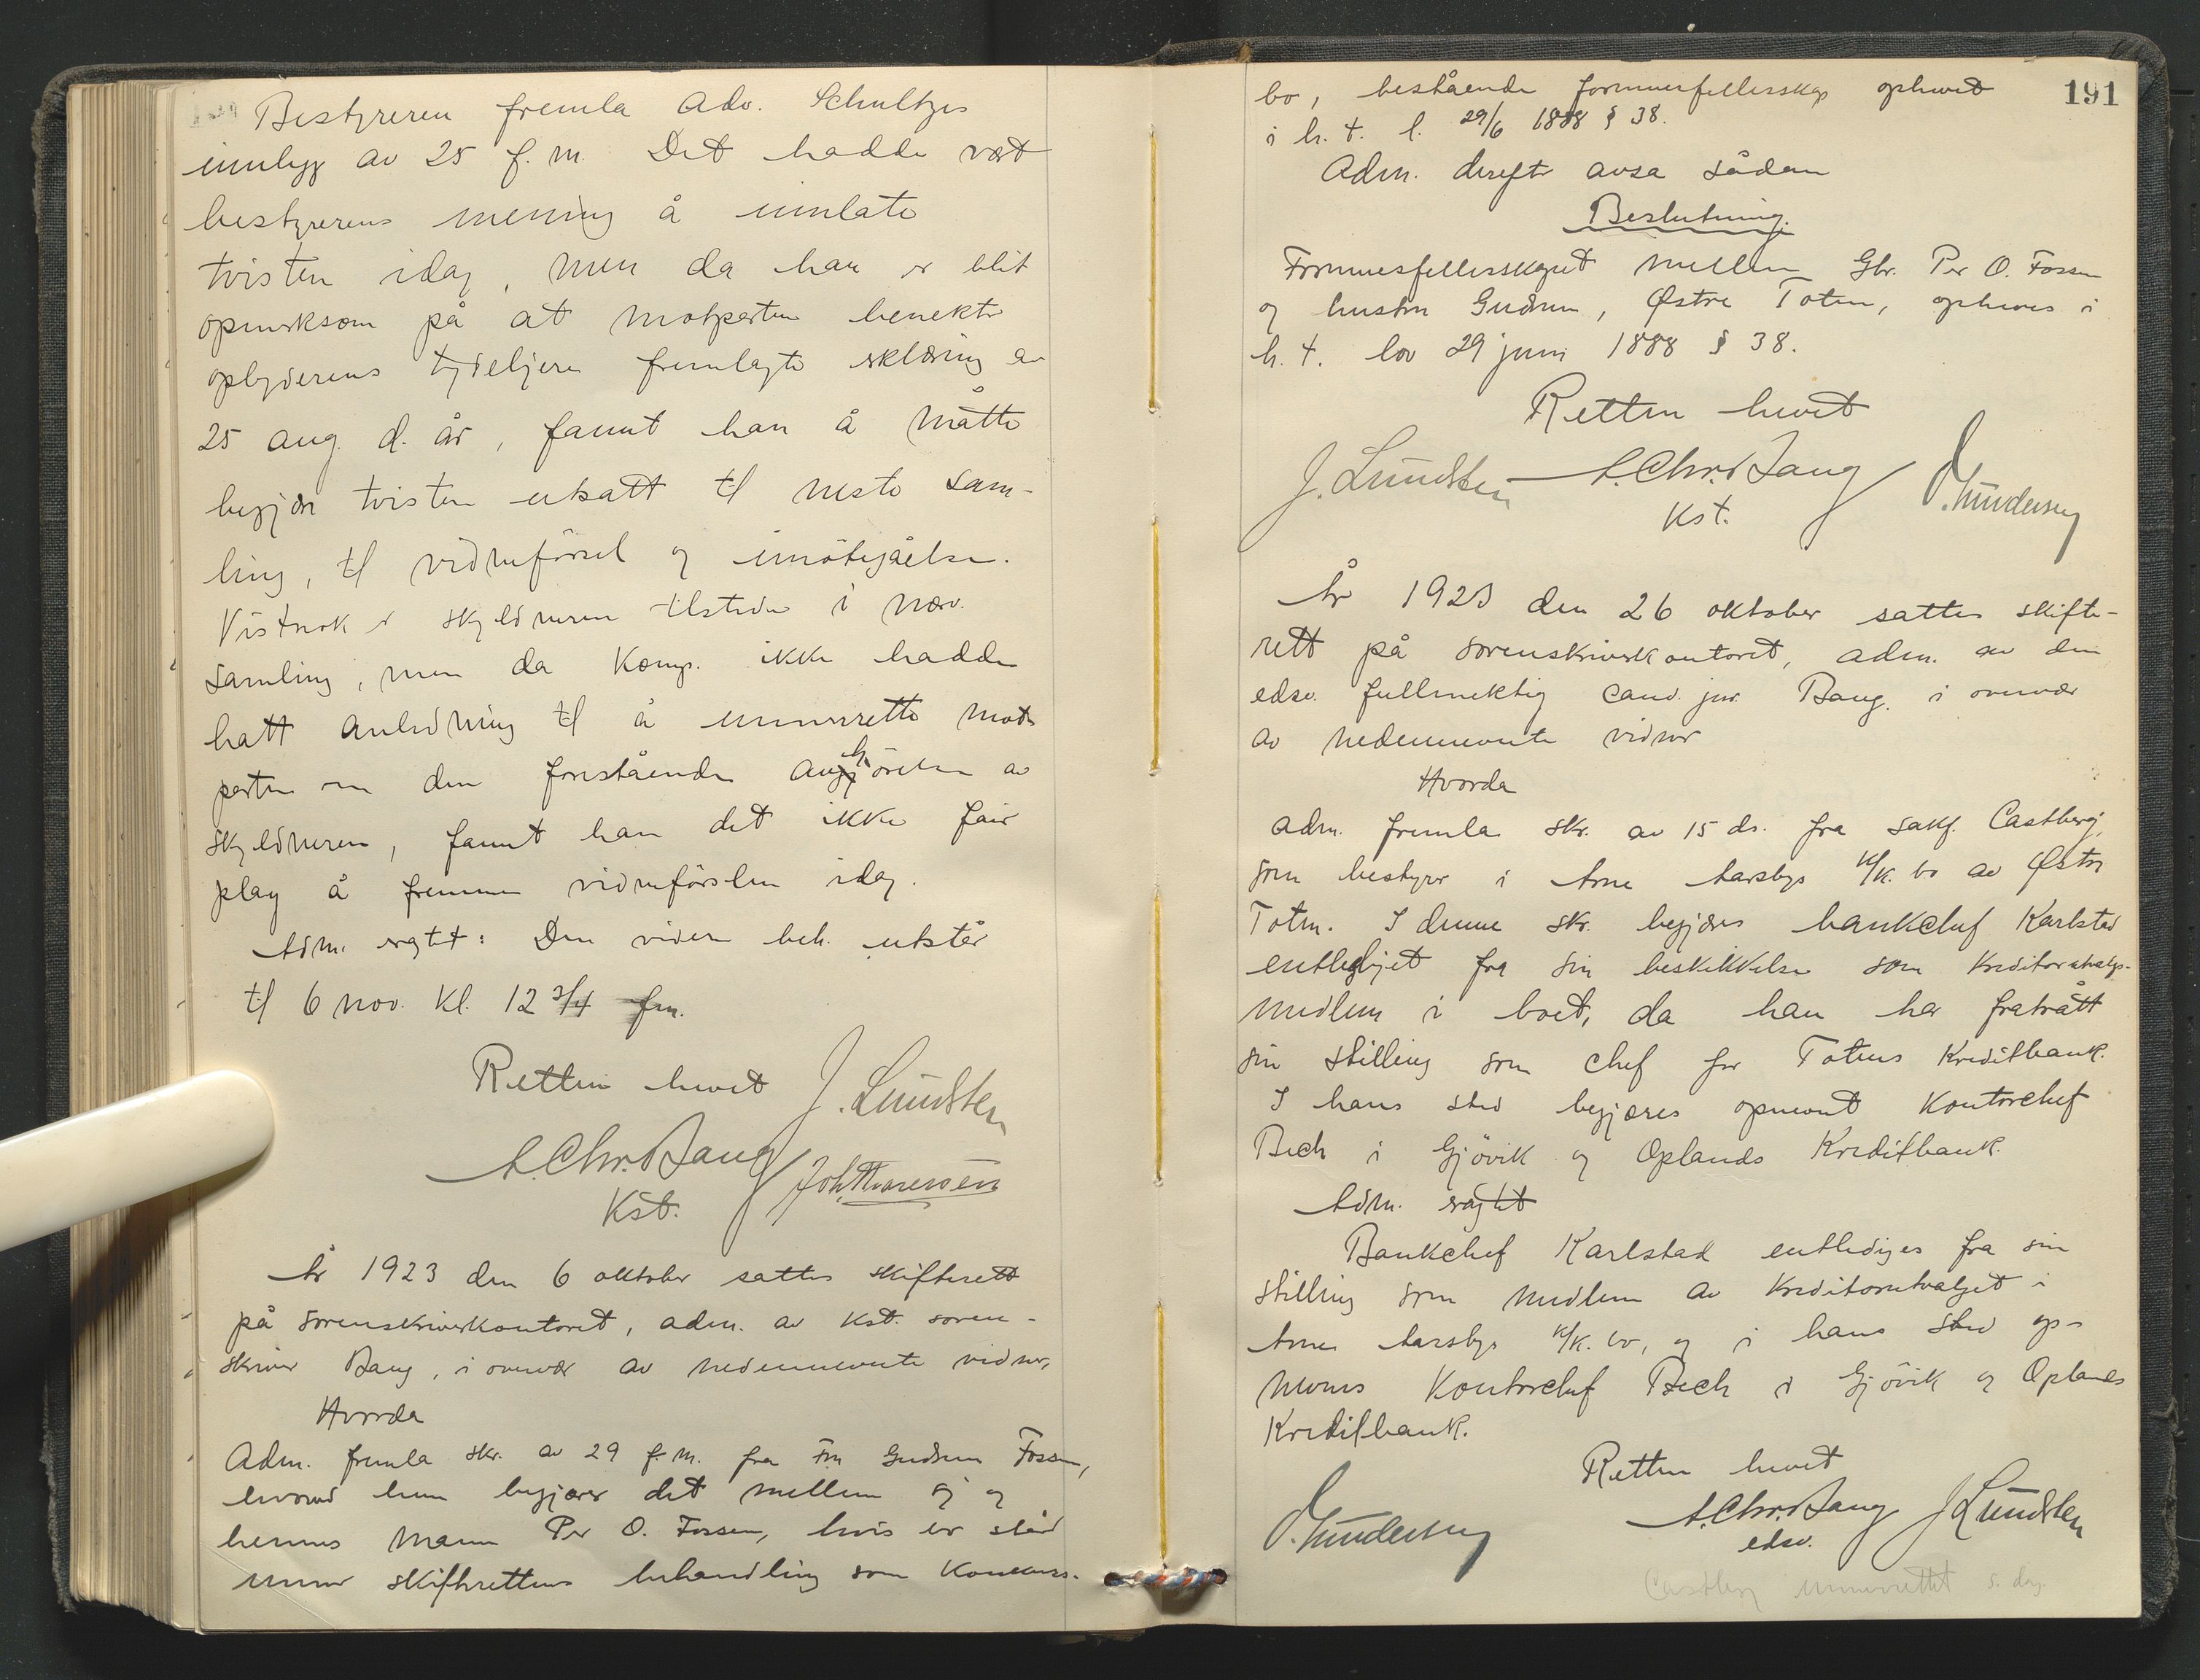 Bestyreren fremla Adv. Schultzes
innlegg av 25 f. m. Det hadde vært
bestyrerens mening å innlate
tvisten idag, men da han er blit
opmerksom på at motparten benekter
opbyderens tydeligere fremlagte erklæring av
25 aug. d. år, fannt han å måtte
begjære tvisten utsatt til neste sam-
ling, til vidneførsel og imøtegåelse.
Vistnok er skyldneren tilstede i nærv.
samling, men da komp. ikke hadde
hatt anledning til å unnerrette mot-
parten om den forestående anhørelse av
skyldneren, fannt han det ikke fair
play å fremme vidneførslen idag.
Adm. eragtet: Den videre beh. utstår
til 6 nov. kl. 12 3/4 fm.
Retten hevet J. Lundsten
A. Chr. Bang Joh. Thoresen
Kst.
År 1923 den 6 oktober sattes skifterett
på sorenskriverkontoret, adm. av kst. soren-
skriver Bang, i overvær av nedennevnte vidner,
Hvorda
Adm. fremla skr. av 29 f. m. fra Fru Gudrun Fossen,
hvorved hun begjærer det mellem sig og
hennes mann Per O. Fossen, hvis bo står
unner skifterettens behandling som konkurs-
191
bo, bestående formuesfellesskap ophevet
i h. t. l. 29/6 1888 § 38.
Adm. derefter avsa sådan
Beslutning.
Formuesfellesskapet mellem Gbr. Per O. Fossen
og hustru Gudrun, Østre Toten, opheves i
h. t. lov 29 juni 1888 § 38.
Retten hevet
J. Lundsten A. Chr. Bang O. Gundersen
Kst.
År 1923 den 26 oktober sattes skifte-
rett på sorenskriverkontoret, adm. av den
edsv. fullmektig cand. jur. Bang, i overvær
av nedennevnte vidner
Hvorda
Adm. fremla skr. av 15 ds. fra sakf. Castberg,
som bestyrer i Arne Aarsbys k/k. bo av Østre
Toten. I denne skr. begjæres bankchef Karlstad
entlediget fra sin beskikkelse som kreditorutvalgs-
medlem i boet, da han har fratrått
sin stilling som chef for Totens Kreditbank.
I hans sted begjæres opnevnt kontorchef
Bech i Gjøvik og Oplands Kreditbank.
Adm. eragtet
Bankchef Karlstad entlediges fra sin
stilling som medlem av kreditorutvalget i
Arne Aarsbys k/k. bo, og i hans sted op-
nevnes kontorchef Bech i Gjøvik og Oplands
Kreditbank.
Retten hevet
O. Gundersen A. Chr. Bang J Lundsten
edsv.
Castberg unnerrettet s. dag.